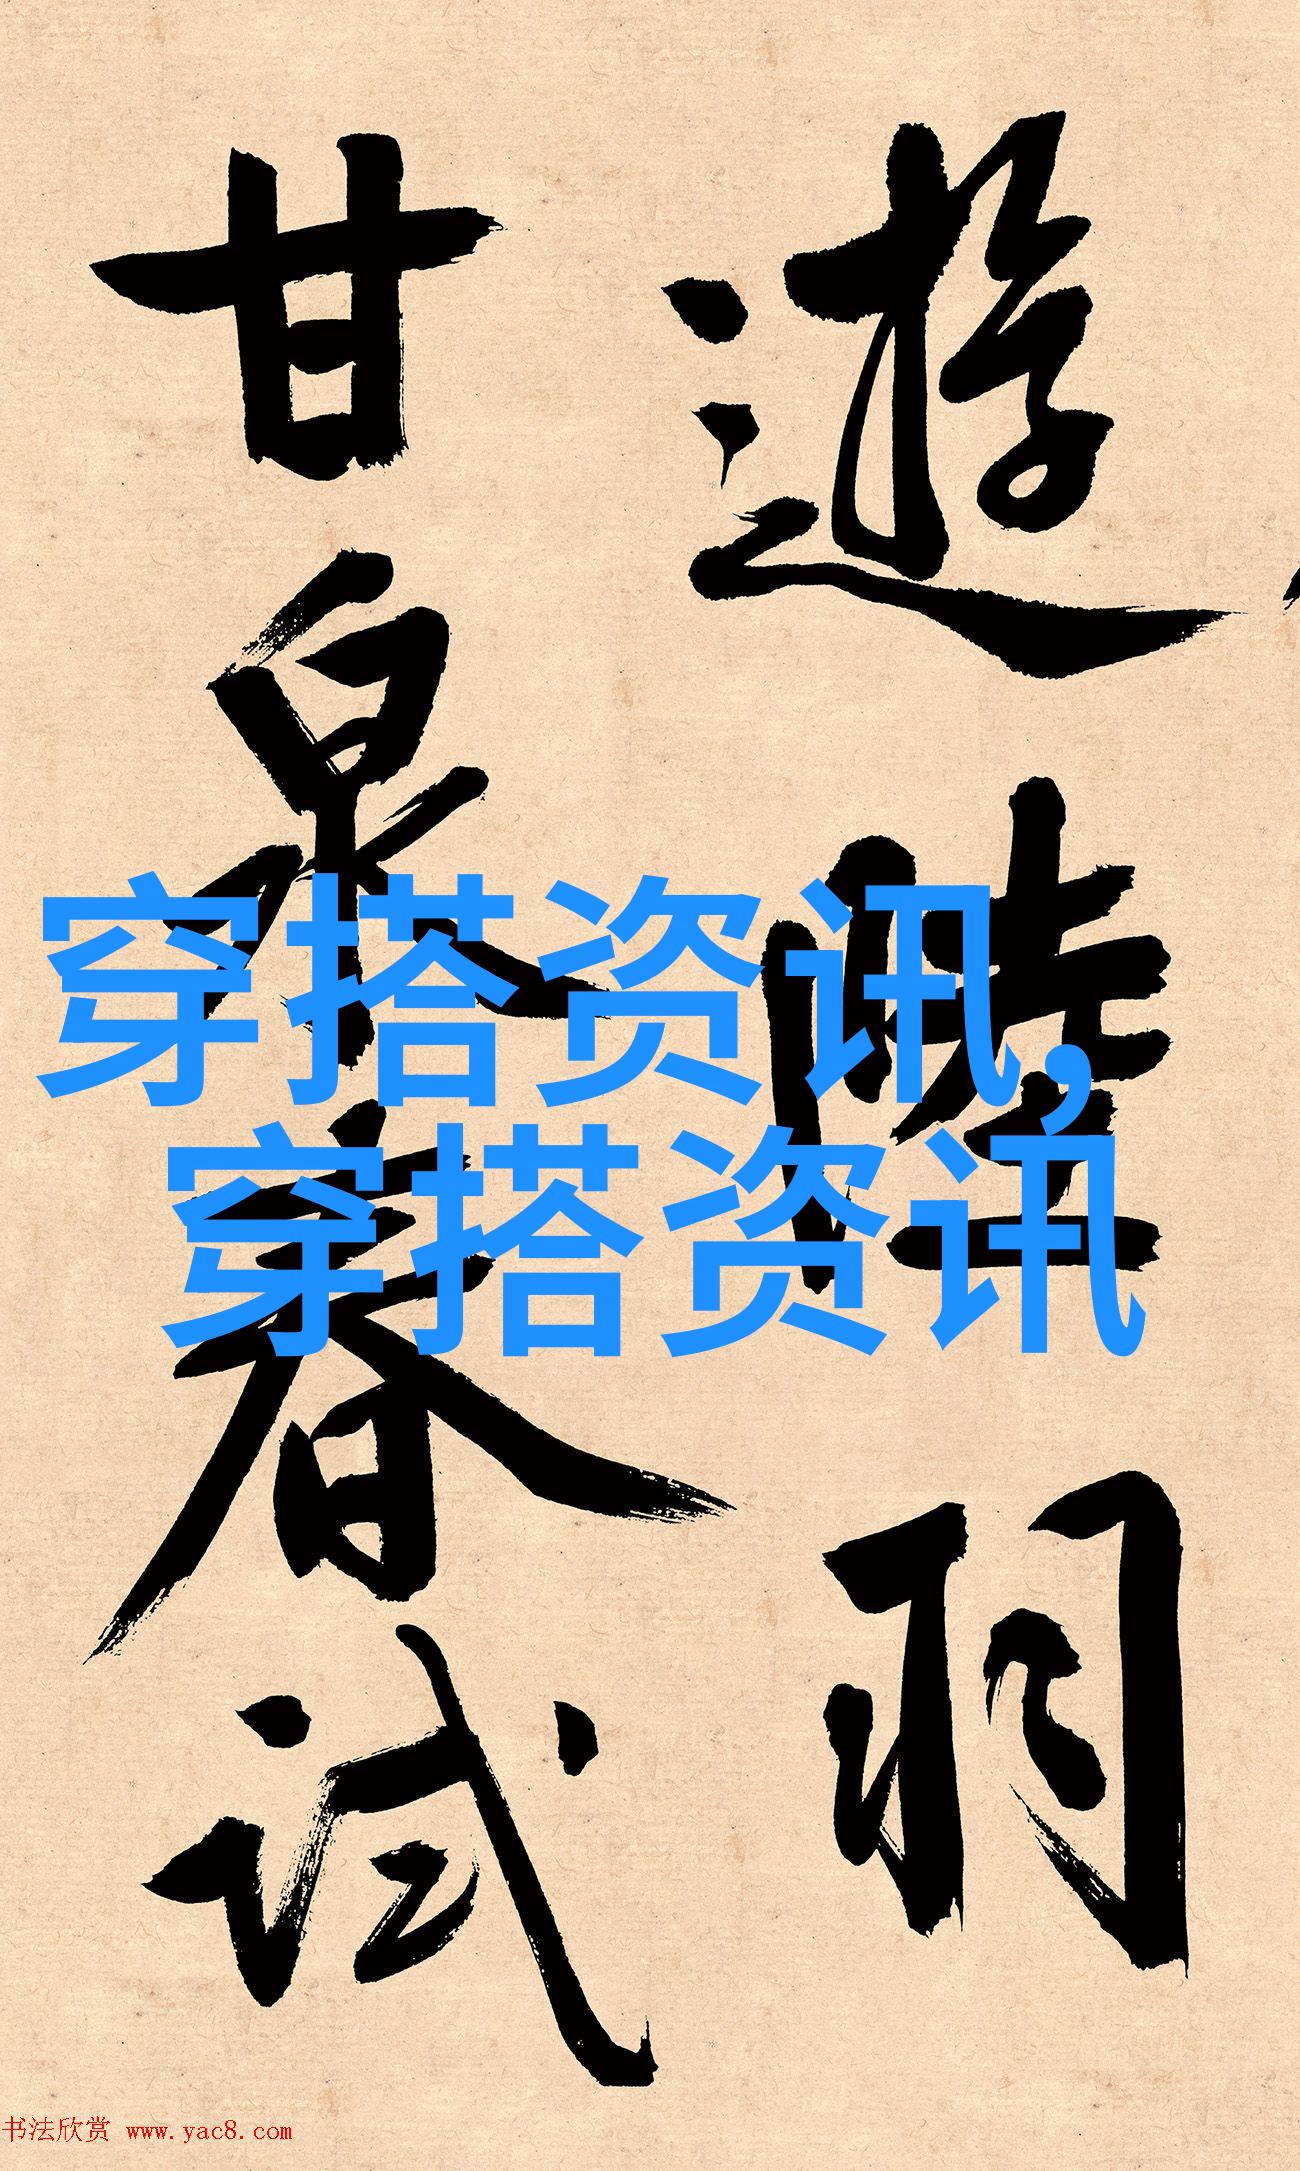 遊陸羽
甘泉春试
穿搭资讯,
穿搭资讯
书法欣赏 www.yac8.com